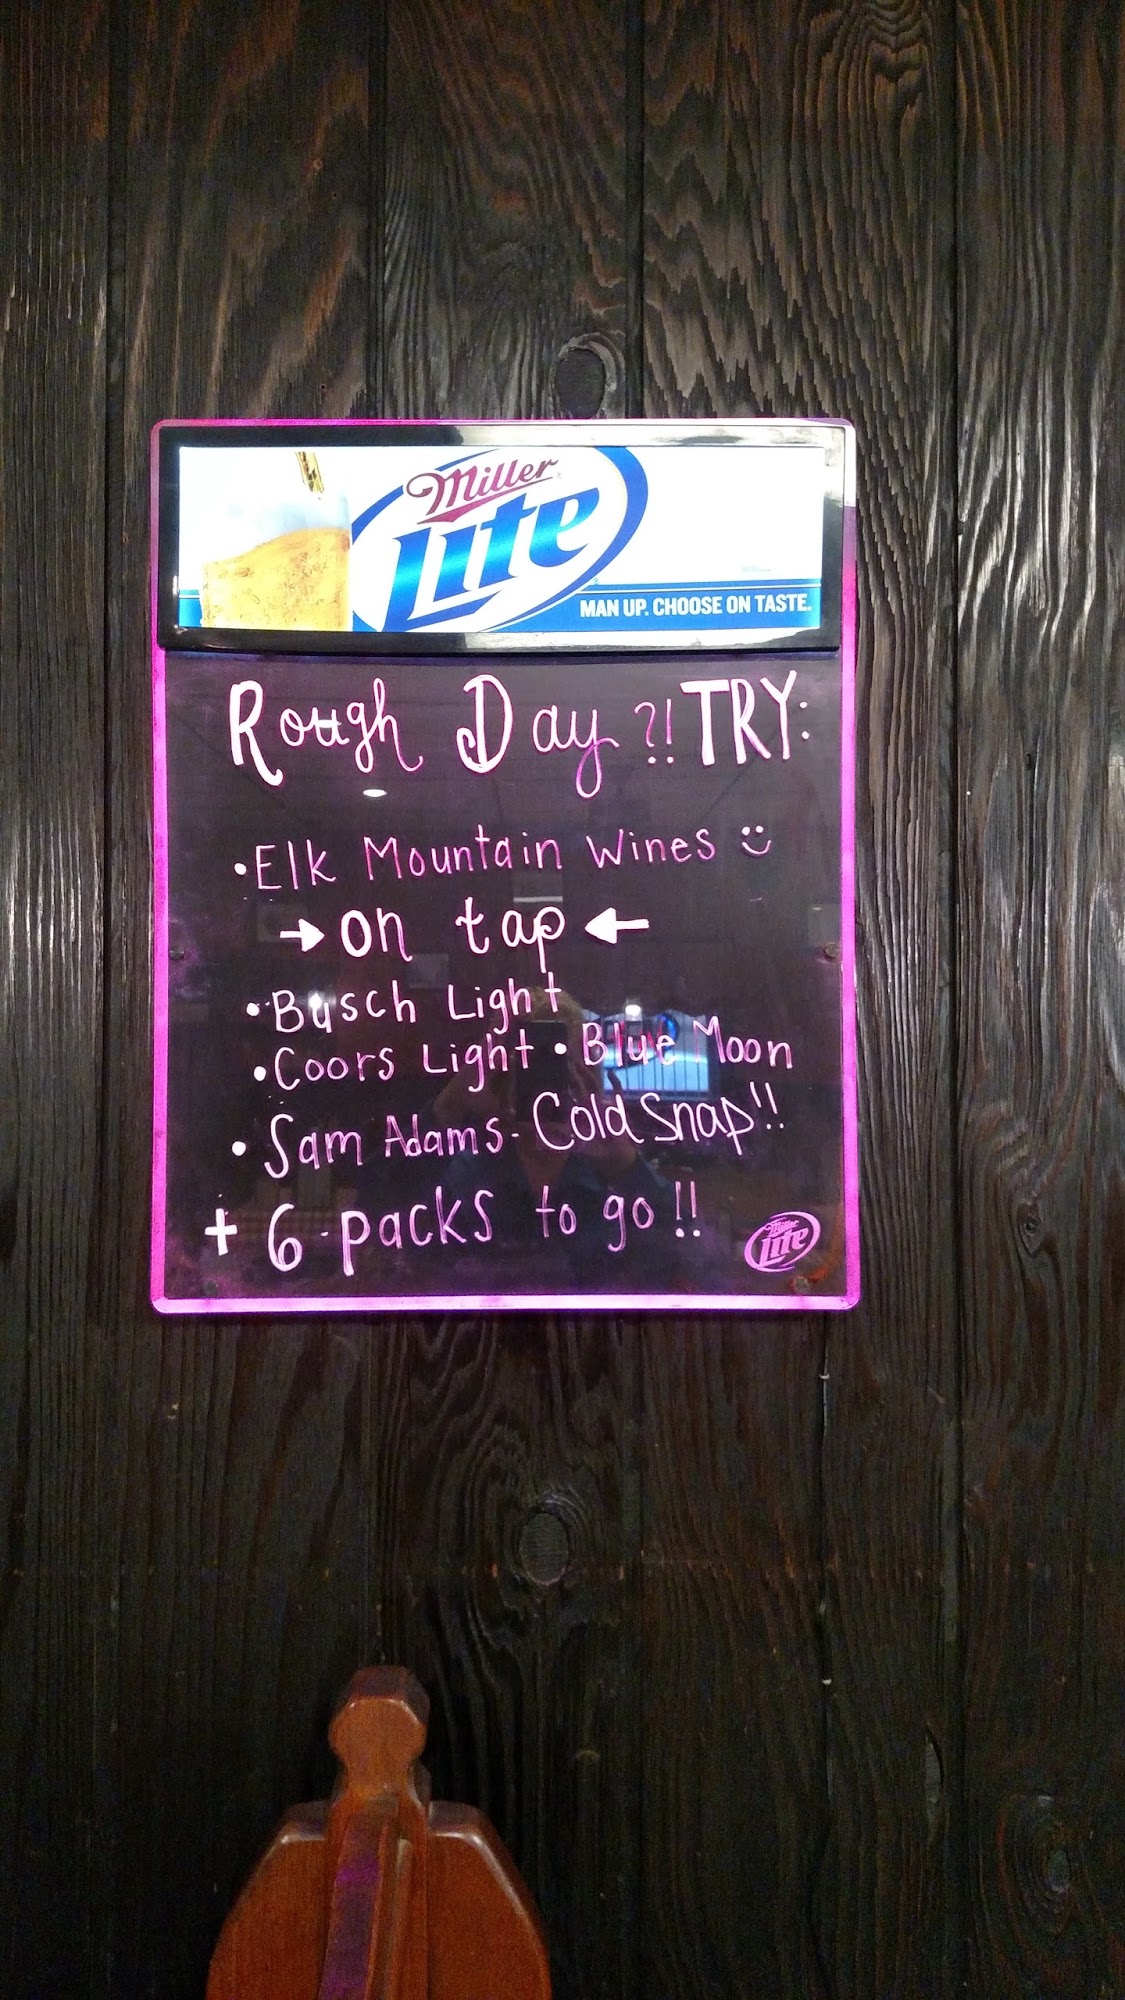 Miller
Lite
MAN UP. CHOOSE ON TASTE.
Rough Day ?! TRY:
• Elk Mountain Wines
→ on tap ←
• Busch Light
• Coors Light • Blue Moon
• Sam Adams - Cold Snap!!
+ 6-packs to go!!
Miller
Lite